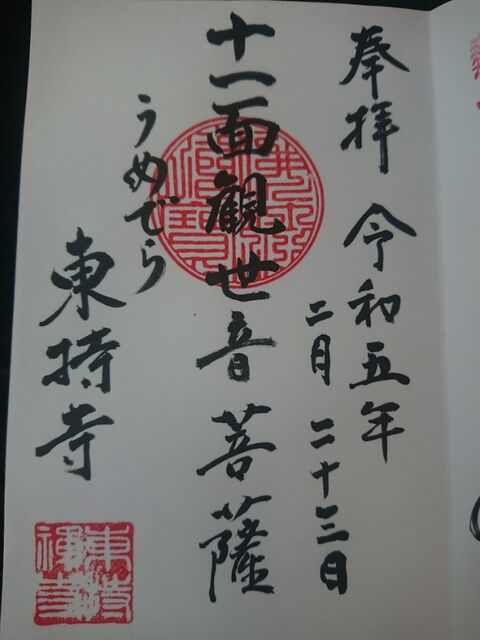 奉拝 令和五年
二月二十三日
十一面観世音菩薩
うめでら
東持寺
東持
禅寺